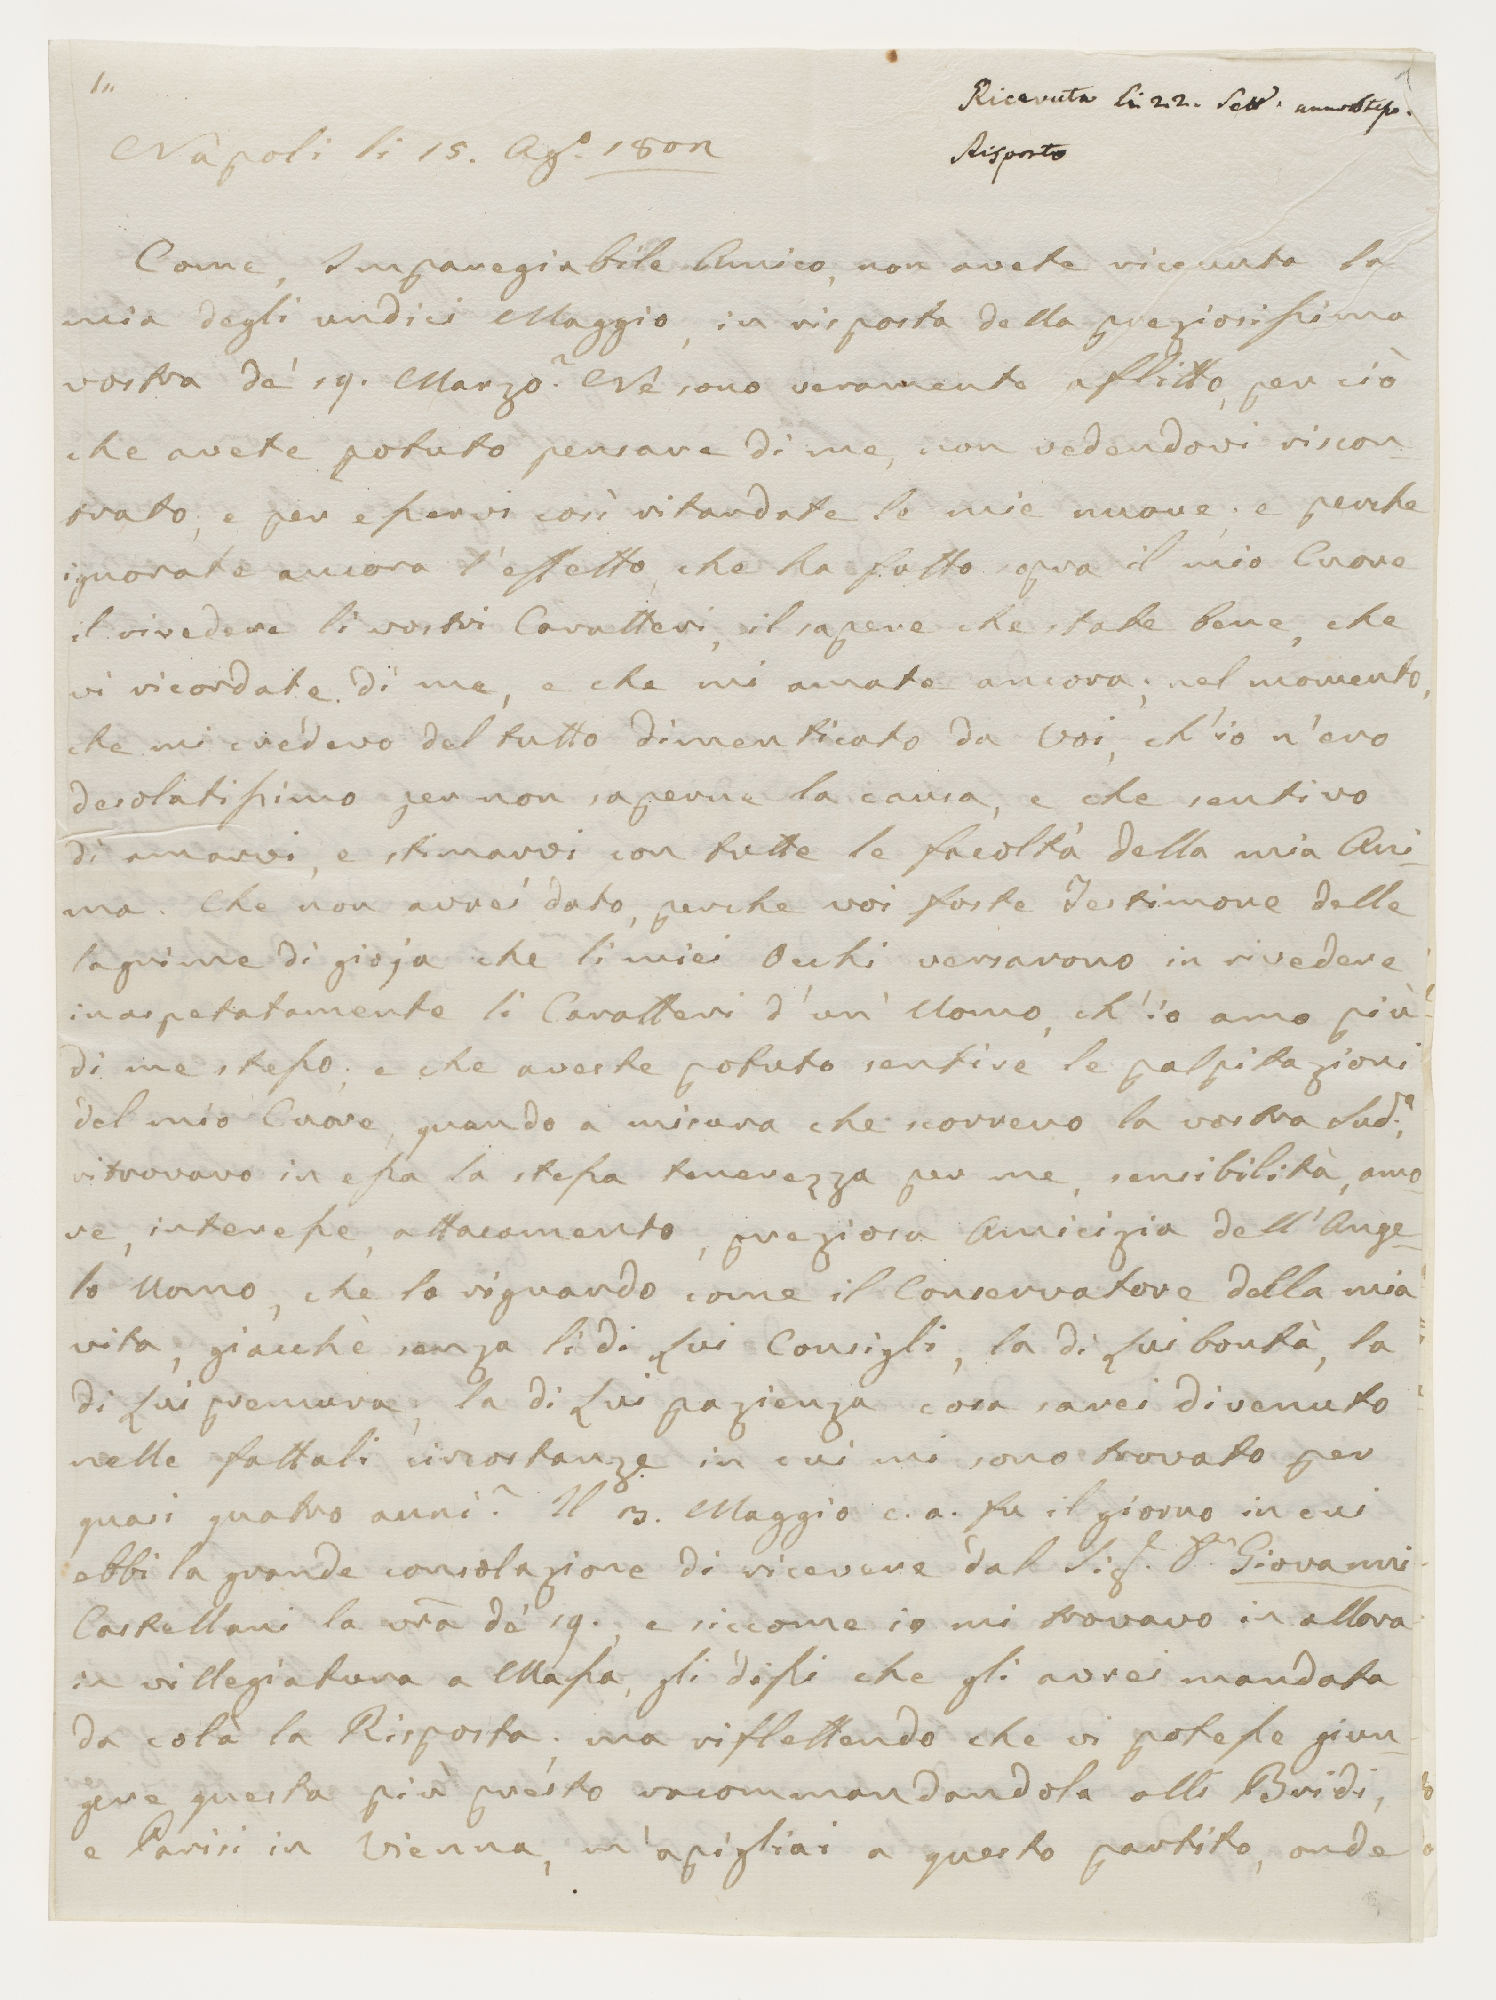 1„
Ricevuta li 22. Sett. anno stesso.
Risposto
Napoli li 15. Ag.º 1802
Come, Imparegiabile Amico, non avete ricevuta la
mia degli undici Maggio, in risposta della preziosissima
vostra de' 19. Marzo? Nè sono veramente aflitto, per ciò
che avete potuto pensare di me, non vedendovi riscon-
trato, e per esservi così ritardate le mie nuove; e perche
ignorate ancora l'effetto, che ha fatto sopra il mio Cuore
il rivedere li vostri Caratteri, il sapere che state bene, che
vi ricordate di me, e che mi amate ancora; nel momento,
che mi credevo del tutto dimenticato da Voi, ch'io n'ero
desolatissimo per non saperne la causa, e che sentivo
di amarvi, e stimarvi con tutte le facoltà della mia Ani-
ma. Che non avrei dato, perche voi foste Testimone delle
lagrime di gioja che li miei Occhi versarono in rivedere
inaspetatamente li Caratteri d'un' Uomo, ch'io amo più
di me stesso; e che aveste potuto sentire le palpitazioni
del mio Cuore, quando a misura che scorrevo la vostra Sud.ª,
ritrovavo in essa la stessa tenerezza per me, sensibilità, amo-
re, interesse, attacamento, preziosa Amicizia dell'Ange-
lo Uomo, che lo riguardo come il Conservatore della mia
vita, giacchè senza li di Lui Consigli, la di Lui bontà, la
di Lui premura, la di Lui pazienza cosa sarei divenuto
nelle fattali circostanze in cui mi sono trovato per
quasi quatro anni? Il 3. Maggio c. a. fu il giorno in cui
ebbi la grande consolazione di ricevere dal Sig.r Giovanni
Castellani la vrã de' 19., e siccome io mi trovavo in allora
in villegiatura a Massa, gli dissi che gli avrei mandata
da colà la Risposta; ma riflettendo che vi potesse giun-
gere questa più presto racommandandola alli Bridi,
e Parisi in Vienna, m'apigliai a questo partito, onde